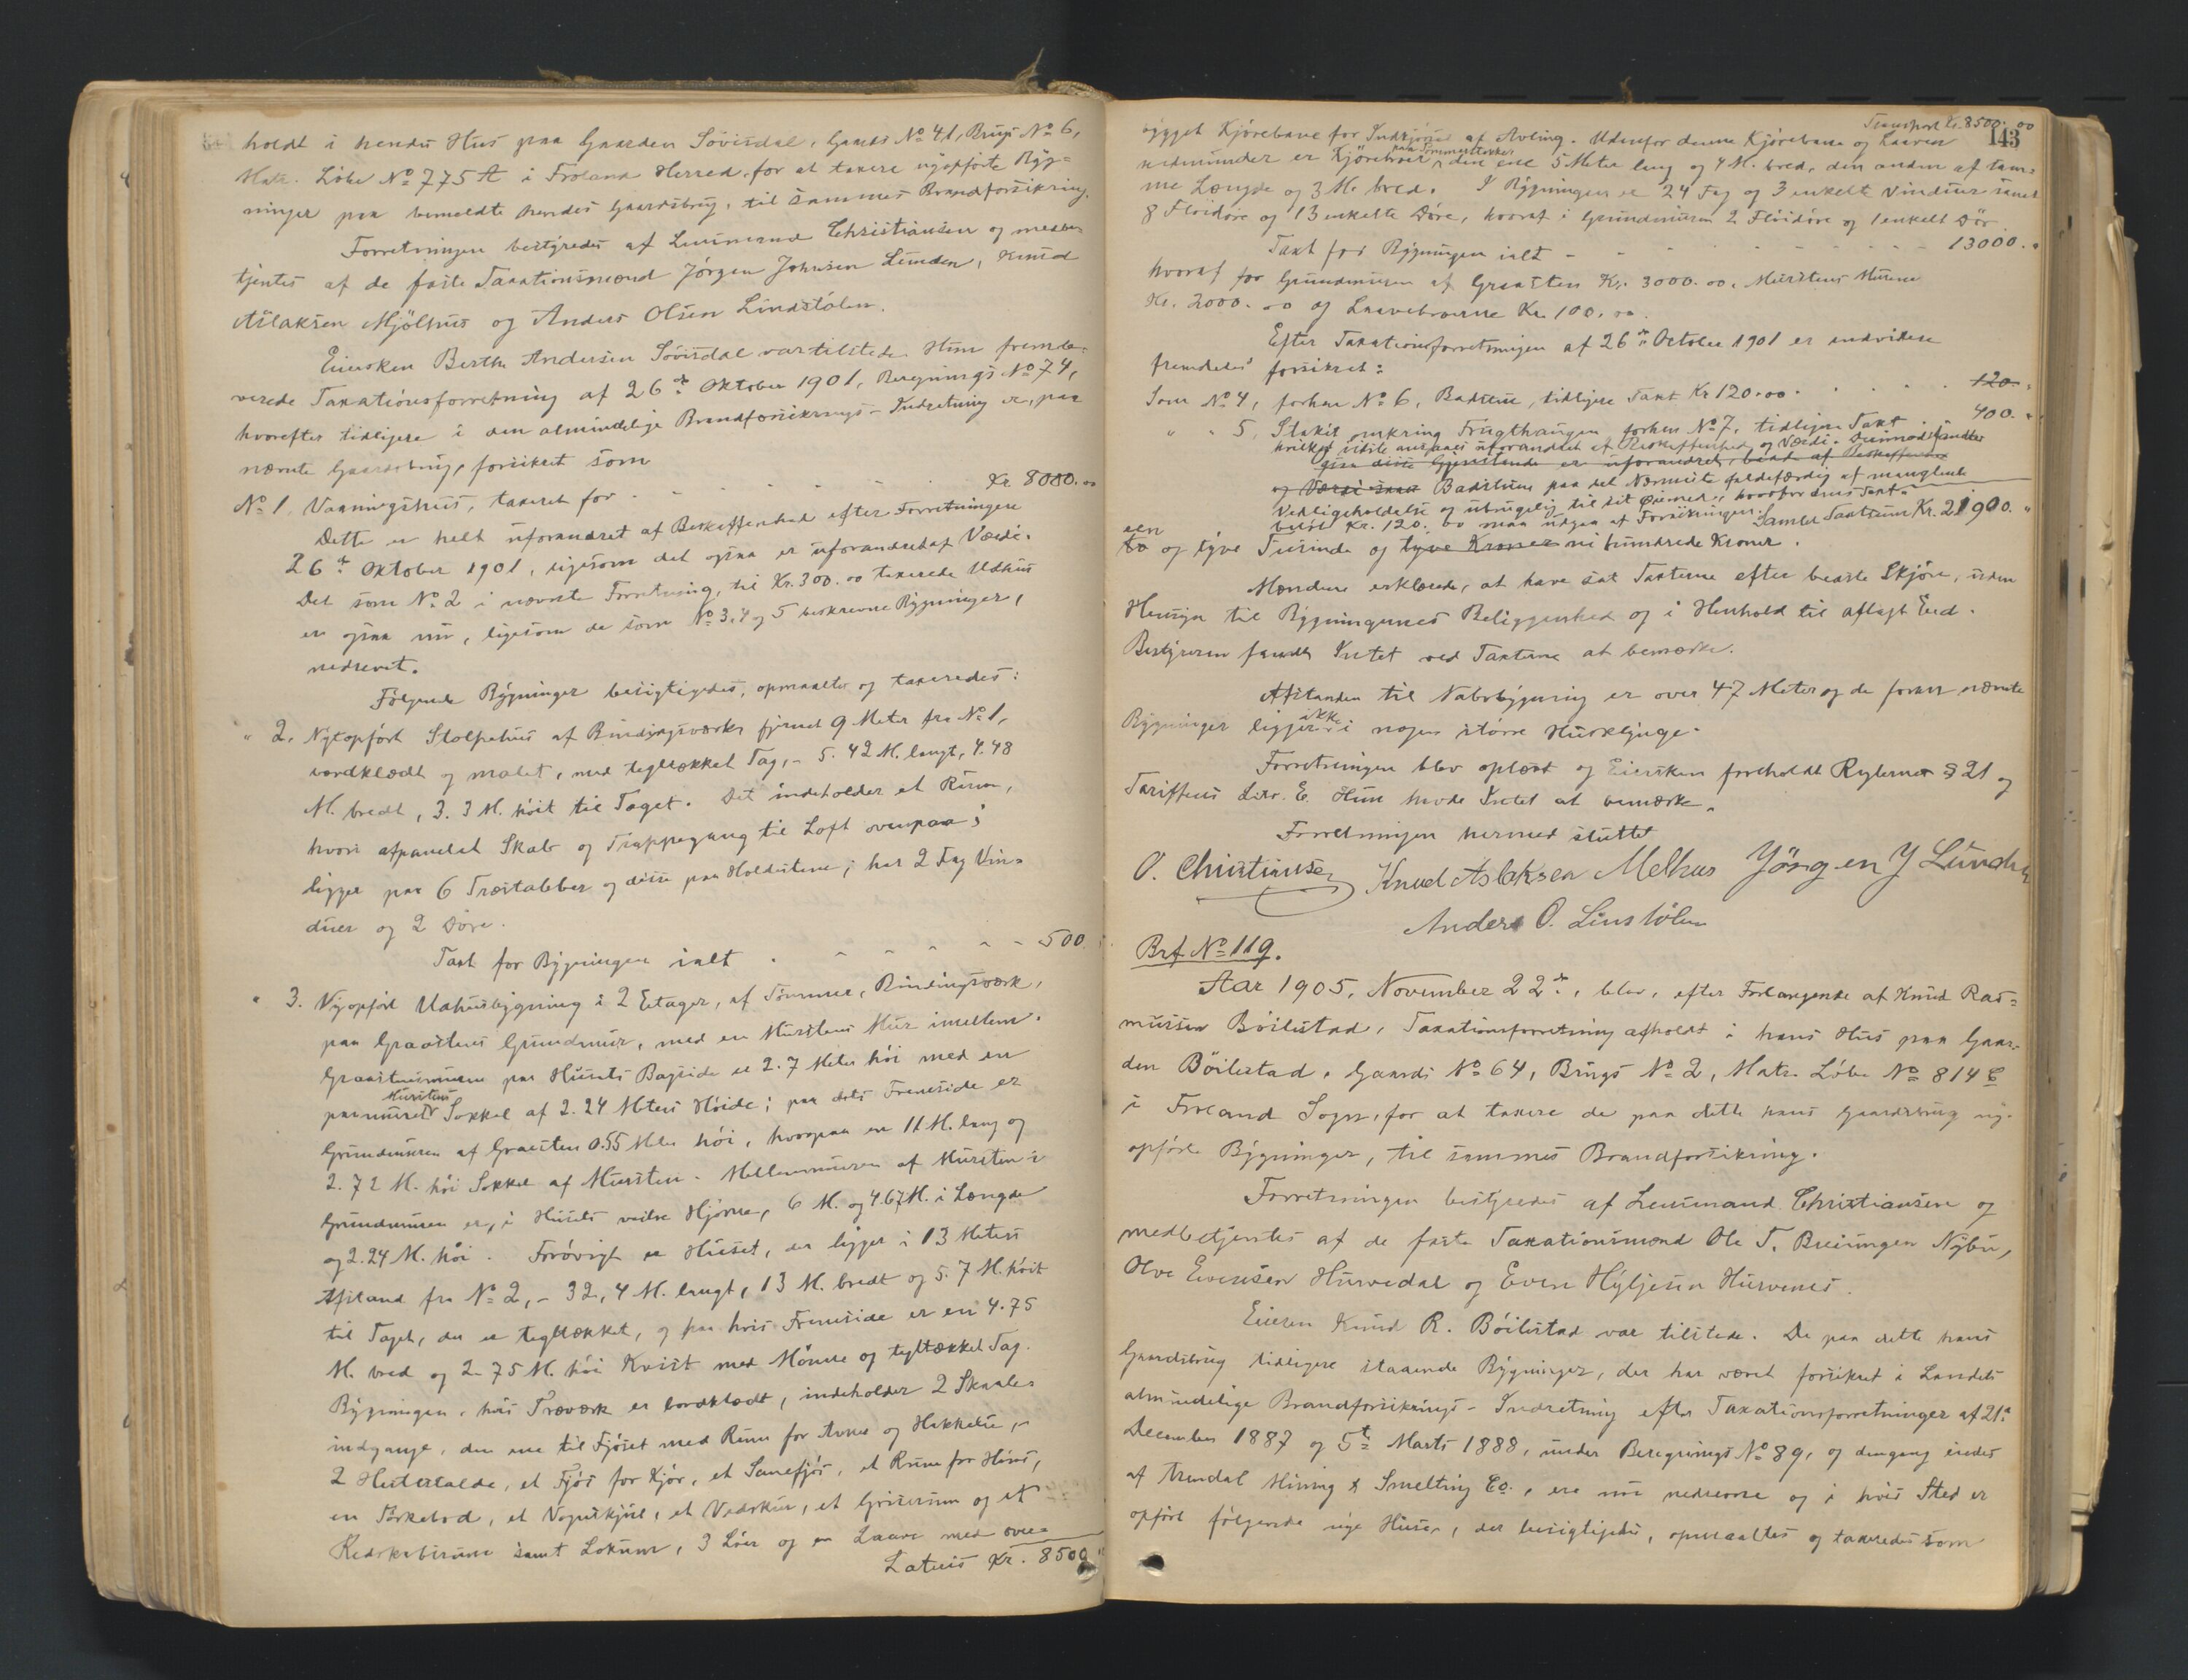 holdt i hendes Hus paa Gaarden Sövisdal, Gaards No 41, Brugs No 6,
Matr. Löbe No 775 A i Froland Herred, for at taxere nyopförte Byg-
ninger paa bemeldte hendes Gaardsbrug, til sammes Brandforsikring.
Forretningen bestyredes af Lensmand Christiansen og medbe-
tjentes af de faste Taxationsmænd Jörgen Johnsen Lunden, Knud
Aslaksen Mjölhus og Anders Olsen Lindstölen.
Eiersken Berthe Andersen Sövisdal var tilstede. Hun fremle-
verede Taxationsforretning af 26de Oktober 1901, Beregnings No 74,
hvorefter tidligere i den almindelige Brandforsikrings-Indretning er, paa
nævnte Gaardsbrug, forsikret som
No 1. Vaaningshus, taxeret for - - - - - Kr 8000.00
Dette er helt uforandret af Beskaffenhed efter Forretningen
26de Oktober 1901, ligesom det ogsaa er uforandret af Værdi.
Det som No 2 i nævnte Forretning, til Kr. 300.00 taxerede Udhus
er ogsaa nu, ligesom de som No 3, 4 og 5 beskrevne Bygninger,
nedrevet.
Fölgende Bygninger besigtigedes, opmaaltes og taxeredes:
" 2. Nytopfört Stolpehus af Bindingsværk, fjernet 9 Meter fra No 1,
bordklædt og malet, med tegltækket Tag, - 5.42 M. langt, 4.48
M. bredt, 3.3 M. höit til Taget. Det indeholder et Rum,
hvori afpanelet Skab og Trappegang til Loft ovenpaa;
ligger paa 6 Træstabber og disse paa Holdstene; har 2 Fag Vin-
duer og 2 Döre.
Taxt for Bygningen ialt - - - - - 500.
" 3. Nyopfört Udhusbygning i 2 Etager, af Tömmer, Bindingsværk,
paa Graastens Grundmur, med en Murstens Mur imellem.
Graastensmuren paa Husets Bagside er 2.7 Meter höi med en
paamuret Murstens Sokkel af 2.24 Meters Höide; paa dets Fremside er
Grundmuren af Graasten 0.55 Meter höi, hvorpaa en 11 M. lang og
2.72 M. höi Sokkel af Mursten. Mellemmuren af Mursten i
Grundmuren er, i Husets vestre Hjörne, 6 M. og 4.67 M. i Længde
og 2.24 M. höi. Forövrigt er Huset, der ligger i 13 Meters
Afstand fra No 2, - 32,4 M. langt, 13 M. bredt og 5.7 M. höit
til Taget, der er tegltækket, og paa hvis Fremside er en 4.75
M. bred og 2.75 M. höi Kvist med Mönne og tegltækket Tag.
Bygningen, hvis Træværk er bordklædt, indeholder 2 Skaale-
indgange, den ene til Fjöset med Rum for Avner og Hakkelse, -
2 Hestestalde, et Fjös for Kjör, et Sauefjös, et Rum for Höns,
en Törkebod, et Vognskjul, et Vedskur, et Griserum og et
Redskabsrum samt Lokum, 3 Löer og en Laave med over-
Latus Kr. 8500 "
Transport Kr. 8500.00
143
bygget Kjörebane for Indkjörsel af Avling. Udenfor denne Kjörebane og Laaven
nedenunder er Kjörebroer paa Tömmerstokker, den ene 5 Meter lang og 4 M. bred, den anden af sam-
me Længde og 3 M. bred. I Bygningen er 24 Fag og 3 enkelte Vinduer samt
8 Flöidöre og 13 enkelte Döre, hvoraf i Grundmuren 2 Flöidöre og 1 enkelt Dör.
Taxt for Bygningen ialt - - - - - 13000. "
hvoraf for Grundmuren af Graasten Kr. 3000.00, Murstens Murene
Kr. 2000.00 og Laavebroerne Kr. 100.00.
Efter Taxationsforretningen af 26de October 1901 er endvidere
fremdeles forsikret:
Som No 4, forhen No 6, Badstue, tidligere Taxt Kr 120.00. . . . 120. "
" " 5, Stakit omkring Frugthaugen forhen No 7, tidligere Taxt . . 400. "
hvilket sidste ansaaes uforandret af Beskaffenhed og Værdi. Derimod fandtes
disse Gjenstande er uforandret, baade af Beskaffenhed
og Værdi Badstuen paa det Nærmeste faldefærdig af manglende
Vedligeholdelse og ubrugelig til sit Öiemed, hvorfor dens Taxt
belöb Kr. 120.00 maa udgaa af Forsikringen. Samlet Taxtsum Kr. 21900. "
to en og tyve Tusinde og tyve Kroner ni hundrede Kroner.
Mændene erklærede, at have sat Taxterne efter bedste Skjön, uden
Hensyn til Bygningernes Beliggenhed og i Henhold til aflagt Eed.
Bestyreren fandt Intet ved Taxterne at bemærke.
Afstanden til Nabobygning er over 47 Meter og de foran nævnte
Bygninger ligger ikke i nogen större Husklynge.
Forretningen blev oplæst og Eiersken foreholdt Reglernes § 21 og
Tariffens Litr. E. Hun havde Intet at bemærke.
Forretningen hermed sluttet
O. Christiansen Knud Aslaksen Melhus Jörgen J Lunden
Anders O. Linstölen
Brf No 119.
Aar 1905, November 22de, blev, efter Forlangende af Knud Ras-
mussen Böilestad, Taxationsforretning afholdt i hans Hus paa Gaar-
den Böilestad, Gaards No 64, Brugs No 2, Matr. Löbe No 814 C
i Froland Sogn, for at taxere de paa dette hans Gaardsbrug ny-
opförte Bygninger, til sammes Brandforsikring.
Forretningen bestyredes af Lensmand Christiansen og
medbetjentes af de faste Taxationsmænd Ole T. Breiungen Nybu,
Olve Evensen Hurvedal og Even Hyljesen Hurvenes.
Eieren Knud R. Böilestad var tilstede. De paa dette hans
Gaardsbrug tidligere staaende Bygninger, der har været forsikret i Landets
almindelige Brandforsikrings-Indretning efter Taxationsforretninger af 21de
December 1887 og 5te Marts 1888, under Beregnings No 89, og dengang eiedes
af Arendal Mining & Smelting Co., ere nu nedrevne og i hvis Sted er
opfört fölgende nye Huse, der besigtigedes, opmaaltes og taxeredes som